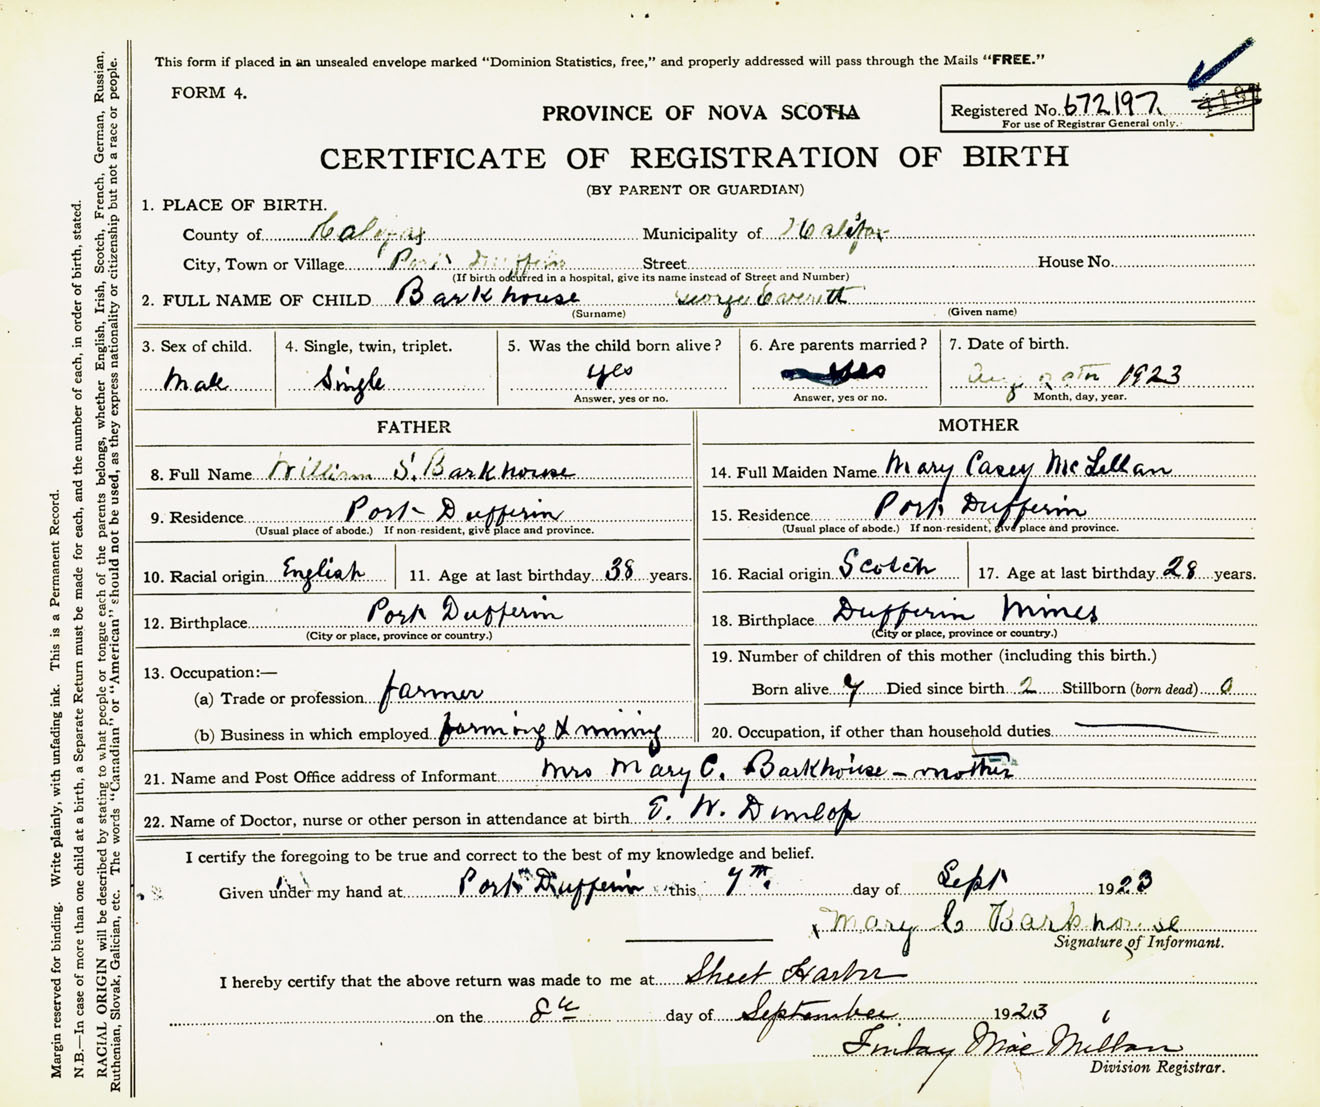 This form if placed in an unsealed envelope marked "Dominion Statistics, free," and properly addressed will pass through the Mails "FREE."
FORM 4.
PROVINCE OF NOVA SCOTIA
Registered No. 672197
For use of Registrar General only.
CERTIFICATE OF REGISTRATION OF BIRTH
(BY PARENT OR GUARDIAN)
1. PLACE OF BIRTH.
County of Halifax Municipality of Halifax
City, Town or Village Port Dufferin Street House No.
(If birth occurred in a hospital, give its name instead of Street and Number)
2. FULL NAME OF CHILD Barkhouse George Everett
(Surname) (Given name)
3. Sex of child. 4. Single, twin, triplet. 5. Was the child born alive? 6. Are parents married? 7. Date of birth.
Male Single yes Yes Aug 1923
Answer, yes or no. Answer, yes or no. Month, day, year.
FATHER MOTHER
8. Full Name William S. Barkhouse 14. Full Maiden Name Mary Casey McLellan
9. Residence Port Dufferin 15. Residence Port Dufferin
(Usual place of abode.) If non-resident, give place and province. (Usual place of abode.) If non-resident, give place and province.
10. Racial origin English 11. Age at last birthday 38 years. 16. Racial origin Scotch 17. Age at last birthday 28 years.
12. Birthplace Port Dufferin 18. Birthplace Dufferin Mines
(City or place, province or country.) (City or place, province or country.)
13. Occupation:— 19. Number of children of this mother (including this birth.)
(a) Trade or profession farmer Born alive 7 Died since birth 2 Stillborn (born dead) 0
(b) Business in which employed farming & mining 20. Occupation, if other than household duties
21. Name and Post Office address of Informant Mrs Mary C. Barkhouse - mother
22. Name of Doctor, nurse or other person in attendance at birth E. W. Dunlop
I certify the foregoing to be true and correct to the best of my knowledge and belief.
Given under my hand at Port Dufferin this 7th day of Sept 1923
Mary C Barkhouse
Signature of Informant.
I hereby certify that the above return was made to me at Sheet Harbor
on the 8th day of September 1923
Finlay MacMillan
Division Registrar.
Margin reserved for binding. Write plainly, with unfading ink. This is a Permanent Record.
N.B.—In case of more than one child at a birth, a Separate Return must be made for each, and the number of each, in order of birth, stated.
RACIAL ORIGIN will be described by stating to what people or tongue each of the parents belongs, whether English, Irish, Scotch, French, German, Russian,
Ruthenian, Slovak, Galician, etc. The words "Canadian" or "American" should not be used, as they express nationality or citizenship but not a race or people.